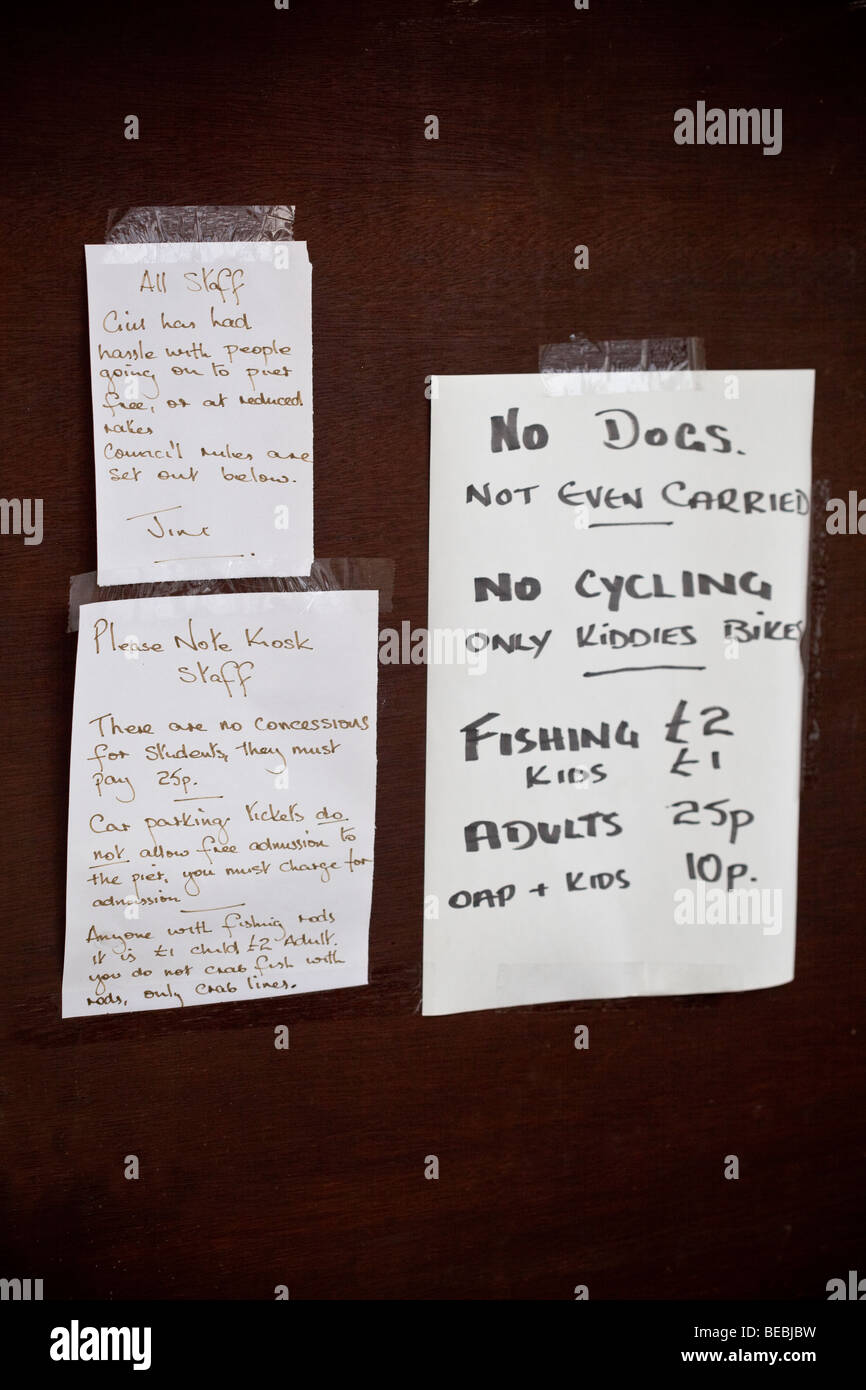 All Staff
has had
hassle with people
going on to pier
free, or at reduced
rates
Council rules are
set out below.
Please Note Kiosk
Staff
There are no concessions
for students, they must
pay 25p.
Car parking tickets do
not allow free admission to
the pier, you must charge for
admission
Anyone with fishing rods
it is £1 child £2 Adult.
you do not crab fish with
rods, only crab lines.
No Dogs.
NOT EVEN CARRIED
NO CYCLING
ONLY KIDDIES BIKES
FISHING £2
KIDS £1
ADULTS 25p
OAP + KIDS 10p.
alamy
Image ID: BEBJBW
www.alamy.com